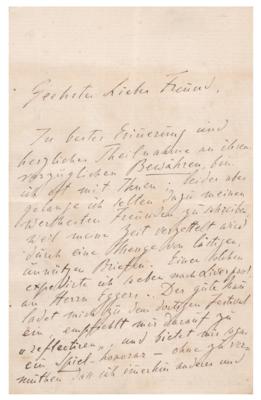 Geehrter Lieber Freund,
In bester Erinnerung und
herzlicher Theilnahme an ihren
vorzüglichen Bewähren, bin
ich oft mit Ihnen; leider aber
gelange ich selten dazu meinen
werthesten Freunden zu schreiben
weil meine Zeit verzettelt wird
durch eine Menge von lästigen,
unnützen Briefen. Einen solchen
expedirte ich soeben nach Liverpool
an Herrn Eggers. Der gute Mann
ladet mich zu dem dortigen Festival
ein, empfiehlt mir darauf zu
„reflectiren“, und bietet mir sogar
ein Spiel-honorar – ohne zu ver-
muthen dass ich immerhin anderes und